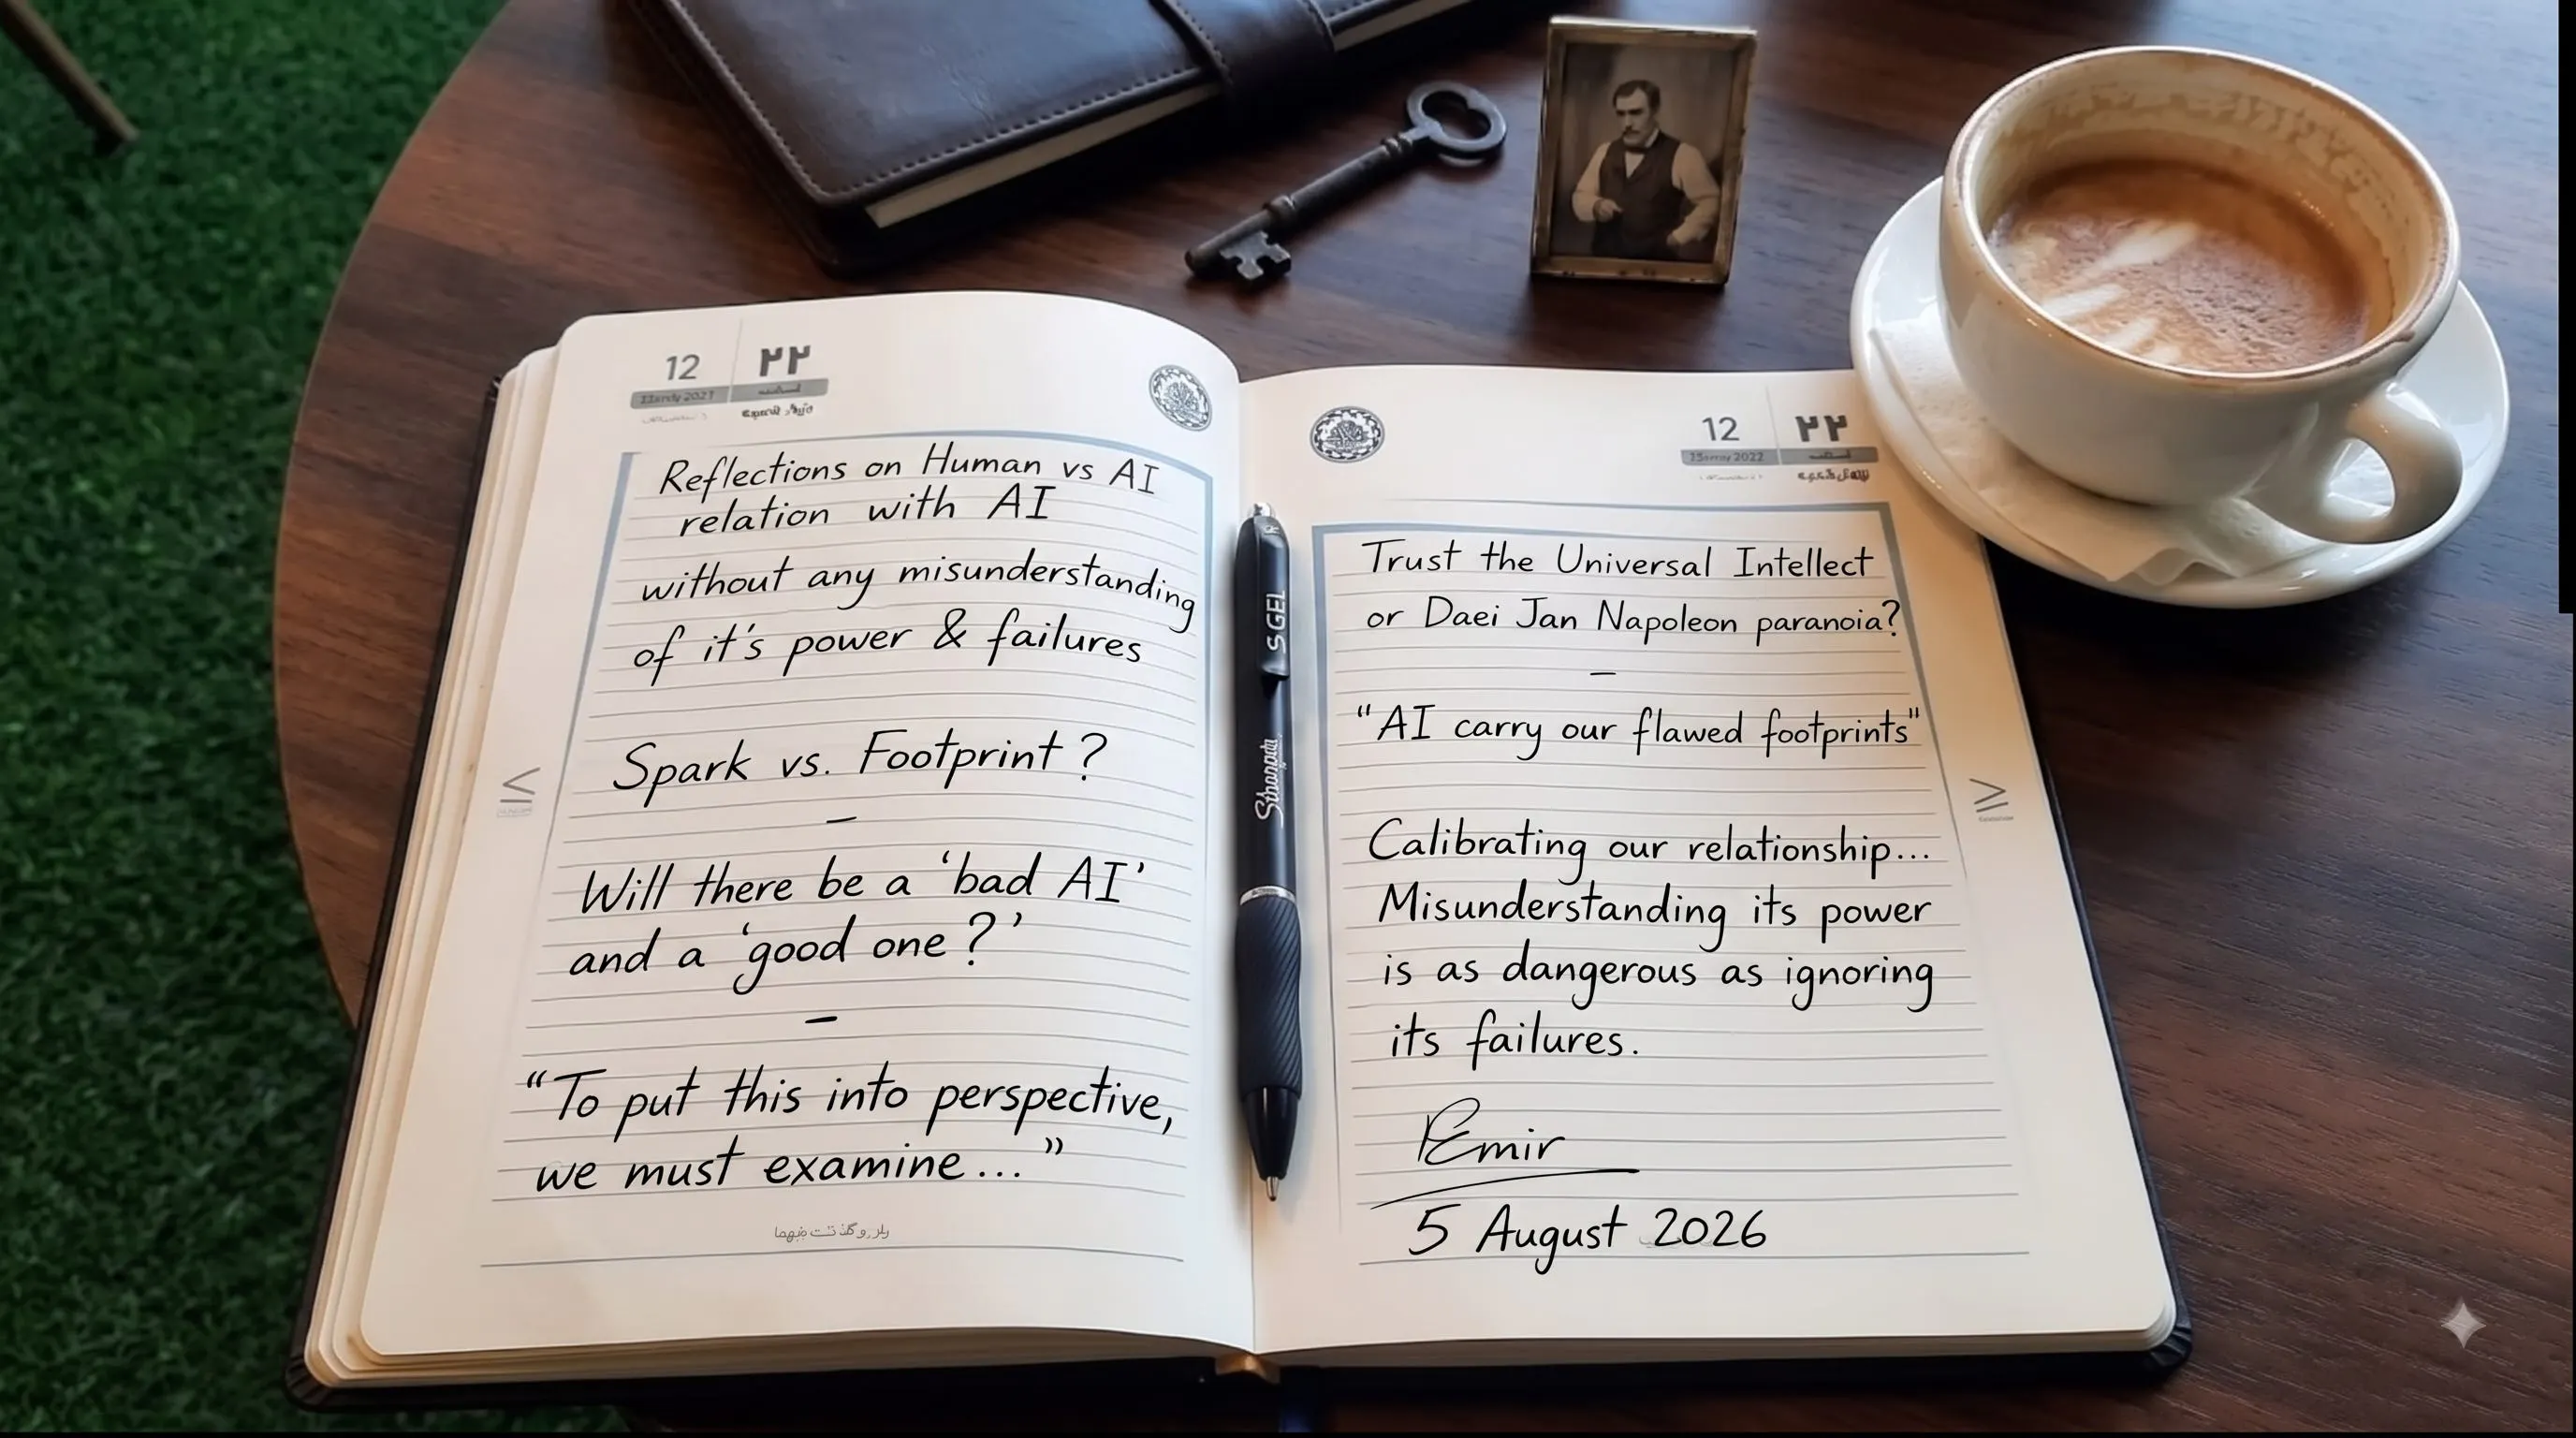 12
۲۲
Reflections on Human vs AI
relation with AI
without any misunderstanding
of it's power & failures
Spark vs. Footprint?
–
Will there be a 'bad AI'
and a 'good one?'
–
"To put this into perspective,
we must examine..."
S GEL
12
۲۲
Trust the Universal Intellect
or Daei Jan Napoleon paranoia?
–
"AI carry our flawed footprints"
Calibrating our relationship...
Misunderstanding its power
is as dangerous as ignoring
its failures.
Emir
5 August 2026